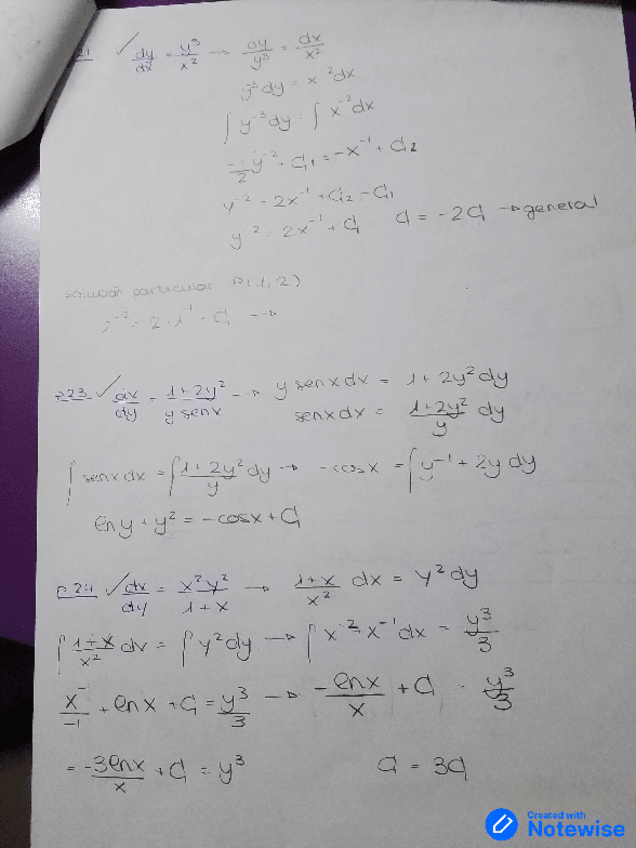 21 ✓ dy/dx = y³/x² → dy/y³ = dx/x²
y⁻³dy = x⁻²dx
∫ y⁻³dy = ∫ x⁻²dx
-1/2 y⁻² + C₁ = -x⁻¹ + C₂
y⁻² = 2x⁻¹ + C₂ - C₁
y⁻² = 2x⁻¹ + C C = -2C → general
solución particular P(1,2)
2⁻² = 2·1⁻¹ + C →
P.23 ✓ dx/dy = 1+2y²/y senx → y senx dx = 1+2y² dy
senx dx = 1+2y²/y dy
∫ senx dx = ∫ 1+2y²/y dy → -cosx = ∫ y⁻¹ + 2y dy
ln y + y² = -cosx + C
P.24 ✓ dx/dy = x²y²/1+x → 1+x/x² dx = y² dy
∫ 1+x/x² dx = ∫ y² dy → ∫ x⁻² + x⁻¹ dx = y³/3
x⁻¹/-1 + ln x + C = y³/3 → -lnx/x + C = y³/3
= -3lnx/x + C = y³ C = 3C
Created with
Notewise